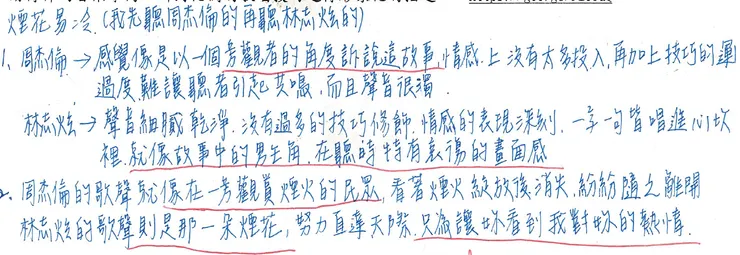 煙花易冷.(我先聽周杰倫的再聽林志炫的)
1、周杰倫→感覺像是以一個旁觀者的角度訴說這故事,情感上沒有太多投入,再加上技巧的運
過度難讓聽者引起共鳴,而且聲音很濁.
林志炫→聲音細膩乾淨.沒有過多的技巧修飾.情感的表現深刻.一字一句皆唱進心坎
裡.就像故事中的男主角.在聽時特有哀傷的畫面感
2、周杰倫的歌聲就像在一旁觀賞煙火的民眾,看著煙火綻放後消失,紛紛隨之離開
林志炫的歌聲則是那一朵煙花,努力直達天際.只為讓妳看到我對妳的熱情.